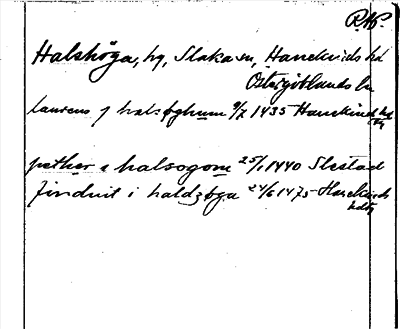 RAP.
Halshöga, by, Slaka sn, Hanekinds hd
Östergötlands ln
laurens j halsøghum 9/7 1435 Hanekind hd
pether a halsogom 25/1 1440 Slestad
finduit i haldzøga 24/6 1475 Hanekinds
hdtg